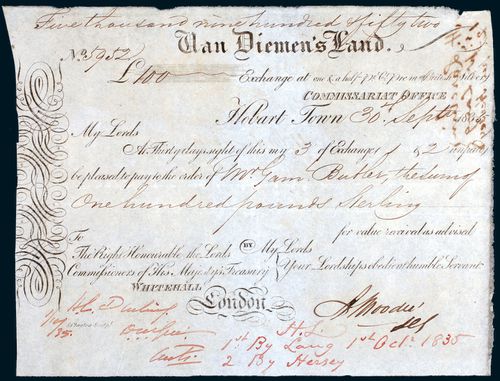 Five thousand nine hundred fifty two
Van Diemen's Land.
No. 5952
£100 Exchange at one & a half p. Ct. Prem British Silver
COMMISSARIAT OFFICE
Hobart Town 30th Septr 1835
My Lords
At Thirty days sight of this my 3 of Exchange 1 & 2 unpaid
be pleased to pay to the order of Mr Butler, the sum of
One hundred pounds Sterling
for value received as advised
To
The Right Honourable the Lords BY My Lords
Commissioners of His Majesty's Treasury Your Lordships obedient humble Servant
WHITEHALL
London
A Moodie
H.L.
1st By Lang 1st Octr 1835
2 By Hersey